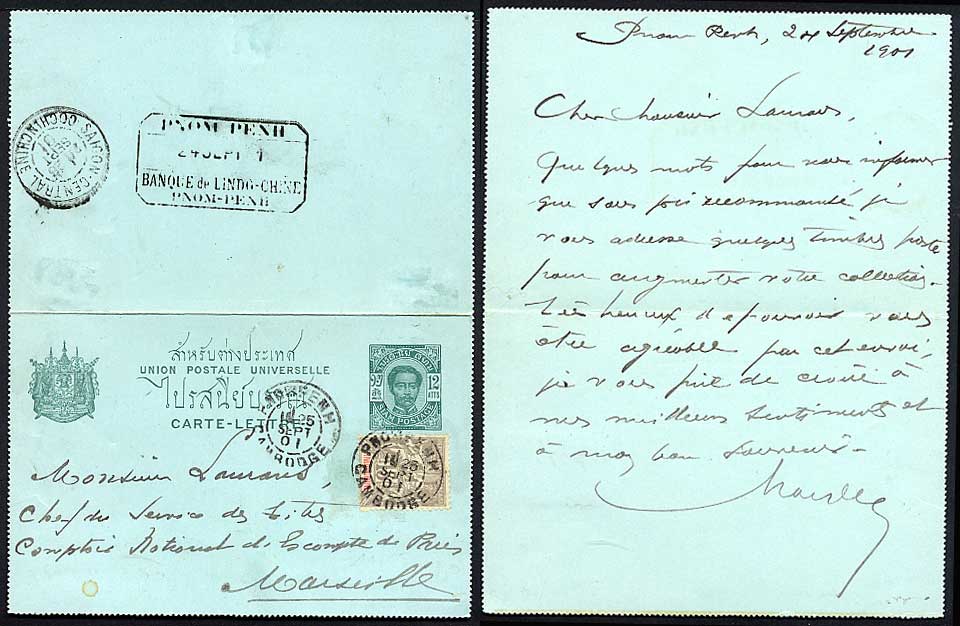 SAIGON-CENTRAL
COCHINCHINE
SEPT
01
PNOM-PENH
24 SEPT 1
BANQUE de L'INDO-CHINE
PNOM-PENH
สำหรับต่างประเทศ
UNION POSTALE UNIVERSELLE
ไปรสนีย์บัตร
CARTE-LETTRE
๑๒
12
ATTS
SIAM POSTAGE
PNOM-PENH
25
SEPT
01
CAMBODGE
PNOM-PENH
25
SEPT
01
CAMBODGE
Monsieur Laurans,
Chef du Service des Titres
Comptoir National d'Escompte de Paris
Marseille
Pnom Penh, 24 Septembre
1901
Cher Monsieur Laurans,
Quelques mots pour vous informer
que sous pli recommandé je
vous adresse quelques timbres poste
pour augmenter votre collection.
Très heureux de pouvoir vous
être agréable par cet envoi,
je vous prie de croire à
mes meilleurs sentiments et
à mon bon souvenir.